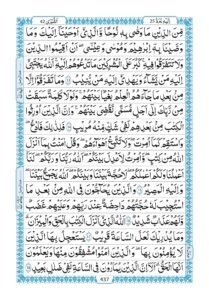 اِلَيْهِ يُرَدُّ ٢٥
الشُّوْرٰى ٤٢
مِّنَ الدِّيْنِ مَا وَصّٰى بِهٖ نُوْحًا وَّالَّذِيْٓ اَوْحَيْنَآ اِلَيْكَ وَمَا
وَصَّيْنَا بِهٖٓ اِبْرٰهِيْمَ وَمُوْسٰى وَعِيْسٰٓى اَنْ اَقِيْمُوا الدِّيْنَ
وَلَا تَتَفَرَّقُوْا فِيْهِ ؕ كَبُرَ عَلَى الْمُشْرِكِيْنَ مَا تَدْعُوْهُمْ اِلَيْهِ ؕ اَللّٰهُ يَجْتَبِيْٓ
اِلَيْهِ مَنْ يَّشَآءُ وَيَهْدِيْٓ اِلَيْهِ مَنْ يُّنِيْبُ ۝ وَمَا تَفَرَّقُوْٓا اِلَّا
مِنْۢ بَعْدِ مَا جَآءَهُمُ الْعِلْمُ بَغْيًاۢ بَيْنَهُمْ ؕ وَلَوْلَا كَلِمَةٌ سَبَقَتْ
مِنْ رَّبِّكَ اِلٰٓى اَجَلٍ مُّسَمًّى لَّقُضِيَ بَيْنَهُمْ ؕ وَاِنَّ الَّذِيْنَ
اُوْرِثُوا الْكِتٰبَ مِنْۢ بَعْدِهِمْ لَفِيْ شَكٍّ مِّنْهُ مُرِيْبٍ ۝ فَلِذٰلِكَ فَادْعُ ۚ
وَاسْتَقِمْ كَمَآ اُمِرْتَ ۚ وَلَا تَتَّبِعْ اَهْوَآءَهُمْ ۚ وَقُلْ اٰمَنْتُ بِمَآ اَنْزَلَ
اللّٰهُ مِنْ كِتٰبٍ ۚ وَاُمِرْتُ لِاَعْدِلَ بَيْنَكُمْ ؕ اَللّٰهُ رَبُّنَا وَرَبُّكُمْ ؕ لَنَآ
اَعْمَالُنَا وَلَكُمْ اَعْمَالُكُمْ ؕ لَا حُجَّةَ بَيْنَنَا وَبَيْنَكُمْ ؕ اَللّٰهُ يَجْمَعُ بَيْنَنَا ۚ
وَاِلَيْهِ الْمَصِيْرُ ۝ وَالَّذِيْنَ يُحَآجُّوْنَ فِي اللّٰهِ مِنْۢ بَعْدِ مَا
اسْتُجِيْبَ لَهٗ حُجَّتُهُمْ دَاحِضَةٌ عِنْدَ رَبِّهِمْ وَعَلَيْهِمْ غَضَبٌ
وَّلَهُمْ عَذَابٌ شَدِيْدٌ ۝ اَللّٰهُ الَّذِيْٓ اَنْزَلَ الْكِتٰبَ بِالْحَقِّ وَالْمِيْزَانَ ؕ
وَمَا يُدْرِيْكَ لَعَلَّ السَّاعَةَ قَرِيْبٌ ۝ يَسْتَعْجِلُ بِهَا الَّذِيْنَ
لَا يُؤْمِنُوْنَ بِهَا ۚ وَالَّذِيْنَ اٰمَنُوْا مُشْفِقُوْنَ مِنْهَا ۙ وَيَعْلَمُوْنَ
اَنَّهَا الْحَقُّ ؕ اَلَآ اِنَّ الَّذِيْنَ يُمَارُوْنَ فِي السَّاعَةِ لَفِيْ ضَلٰلٍۢ بَعِيْدٍ ۝
437